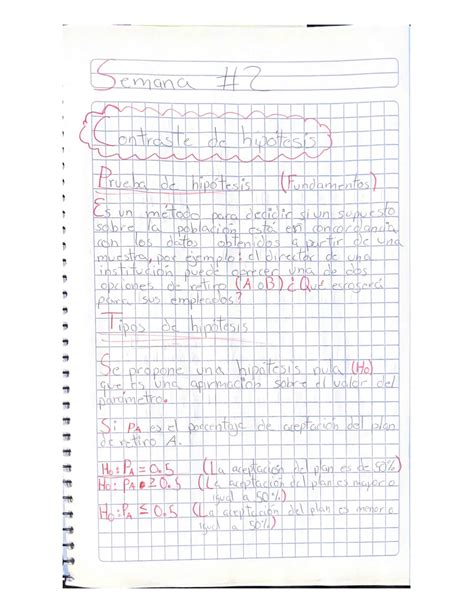 Semana #2
Contraste de hipótesis
Prueba de hipótesis (Fundamentos)
Es un método para decidir si un supuesto
sobre la población está en concordancia
con los datos obtenidos a partir de una
muestra, por ejemplo: el director de una
institución puede ofrecer una de dos
opciones de retiro (A o B) ¿Qué escogerá
para sus empleados?
Tipos de hipótesis
Se propone una hipótesis nula (Ho)
que es una afirmación sobre el valor del
parámetro.
Si: PA es el porcentaje de aceptación del plan
de retiro A.
Ho: PA = 0.5 (La aceptación del plan es de 50%)
Ho: PA ≥ 0.5 (La aceptación del plan es mayor o
igual a 50%)
Ho: PA ≤ 0.5 (La aceptación del plan es menor o
igual a 50%)